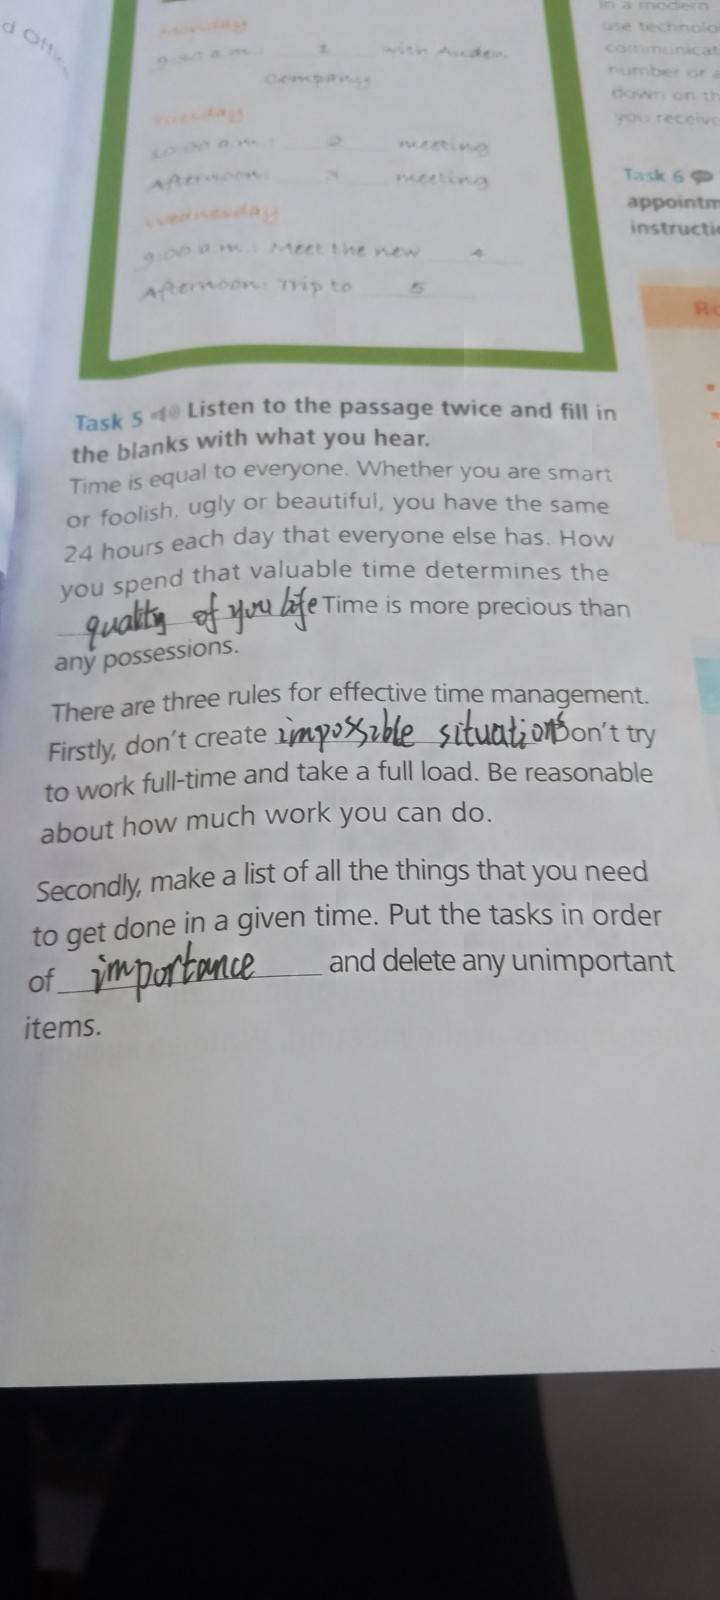 d Offic
Monday
9:00 a.m.: 1 with Auden
Company
Tuesday
10:00 a.m.: 2 meeting
Afternoon: 3 meeting
Wednesday
9:00 a.m.: Meet the new 4
Afternoon: Trip to 5
in a modern
use technolo
communicat
number or a
down on th
you receive
Task 6
appointm
instructi
Task 5 Listen to the passage twice and fill in
the blanks with what you hear.
Time is equal to everyone. Whether you are smart
or foolish, ugly or beautiful, you have the same
24 hours each day that everyone else has. How
you spend that valuable time determines the
quality of you life Time is more precious than
any possessions.
There are three rules for effective time management.
Firstly, don't create impossible situations on't try
to work full-time and take a full load. Be reasonable
about how much work you can do.
Secondly, make a list of all the things that you need
to get done in a given time. Put the tasks in order
of importance and delete any unimportant
items.